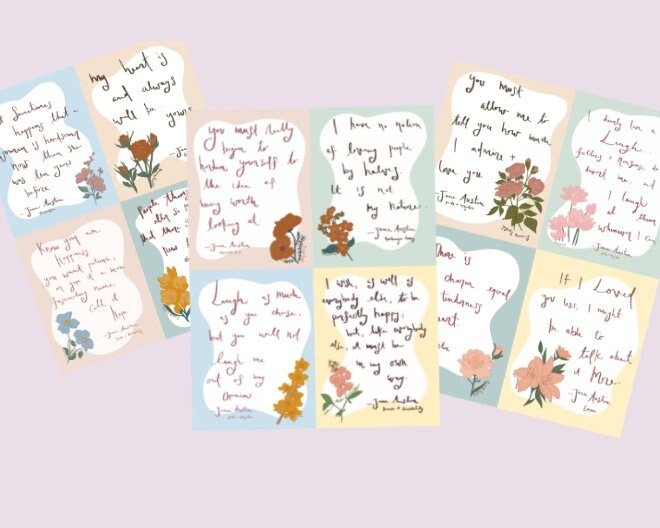 Sometimes
happens that a
woman is handsomer
than she
was ten years
before
—Jane Austen
my heart is
and always
will be yours
Know your own
happiness.
you want
Call it
Hope
—Jane Austen
People
that
you must really
begin to
harden yourself to
the idea of
being worth
looking at.
—Jane Austen
I have no notion
of loving people
by halves,
It is not
my nature.
—Jane Austen
Northanger Abbey
Laugh as much
as you choose,
but you will not
laugh me
out of my
opinion
—Jane Austen
I wish, as well as
everybody else, to be
perfectly happy;
but, like everybody
else, it must be
in my own
way.
—Jane Austen
Sense & Sensibility
you must
allow me to
tell you how much
I admire +
love you.
—Jane Austen
I dearly love a
Laugh
follies + nonsense
I laugh
at them
whenever I can
—Jane Austen
There is
charm equal
tenderness
heart.
If I Loved
you less, I might
be able to
talk about
it More.
—Jane Austen
Emma